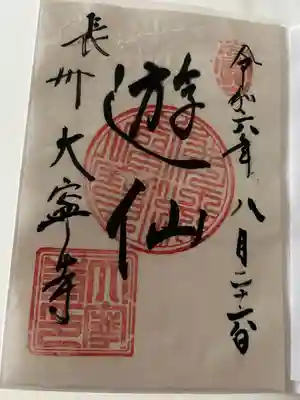 令和六年八月二十六日
遊仙
長州大寧寺